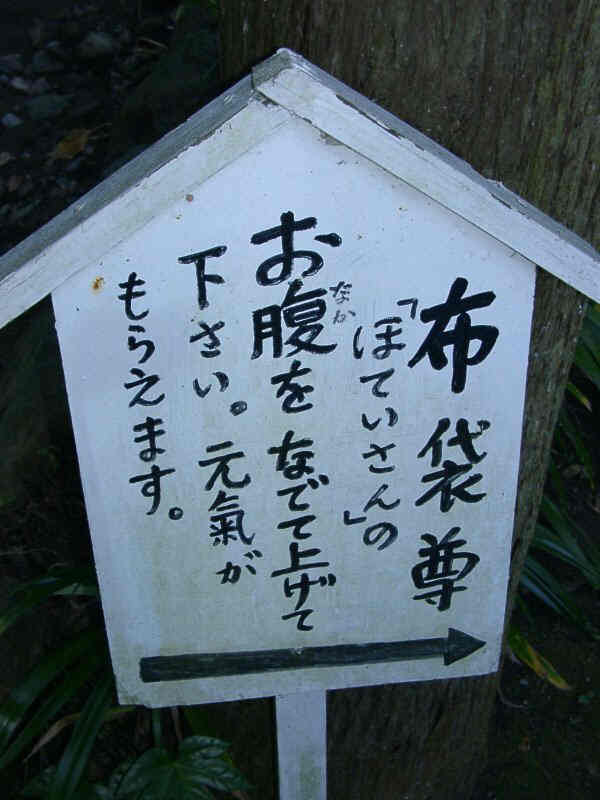 布袋尊
「ほていさん」の
お腹をなでて上げて
なか
下さい。元氣が
もらえます。